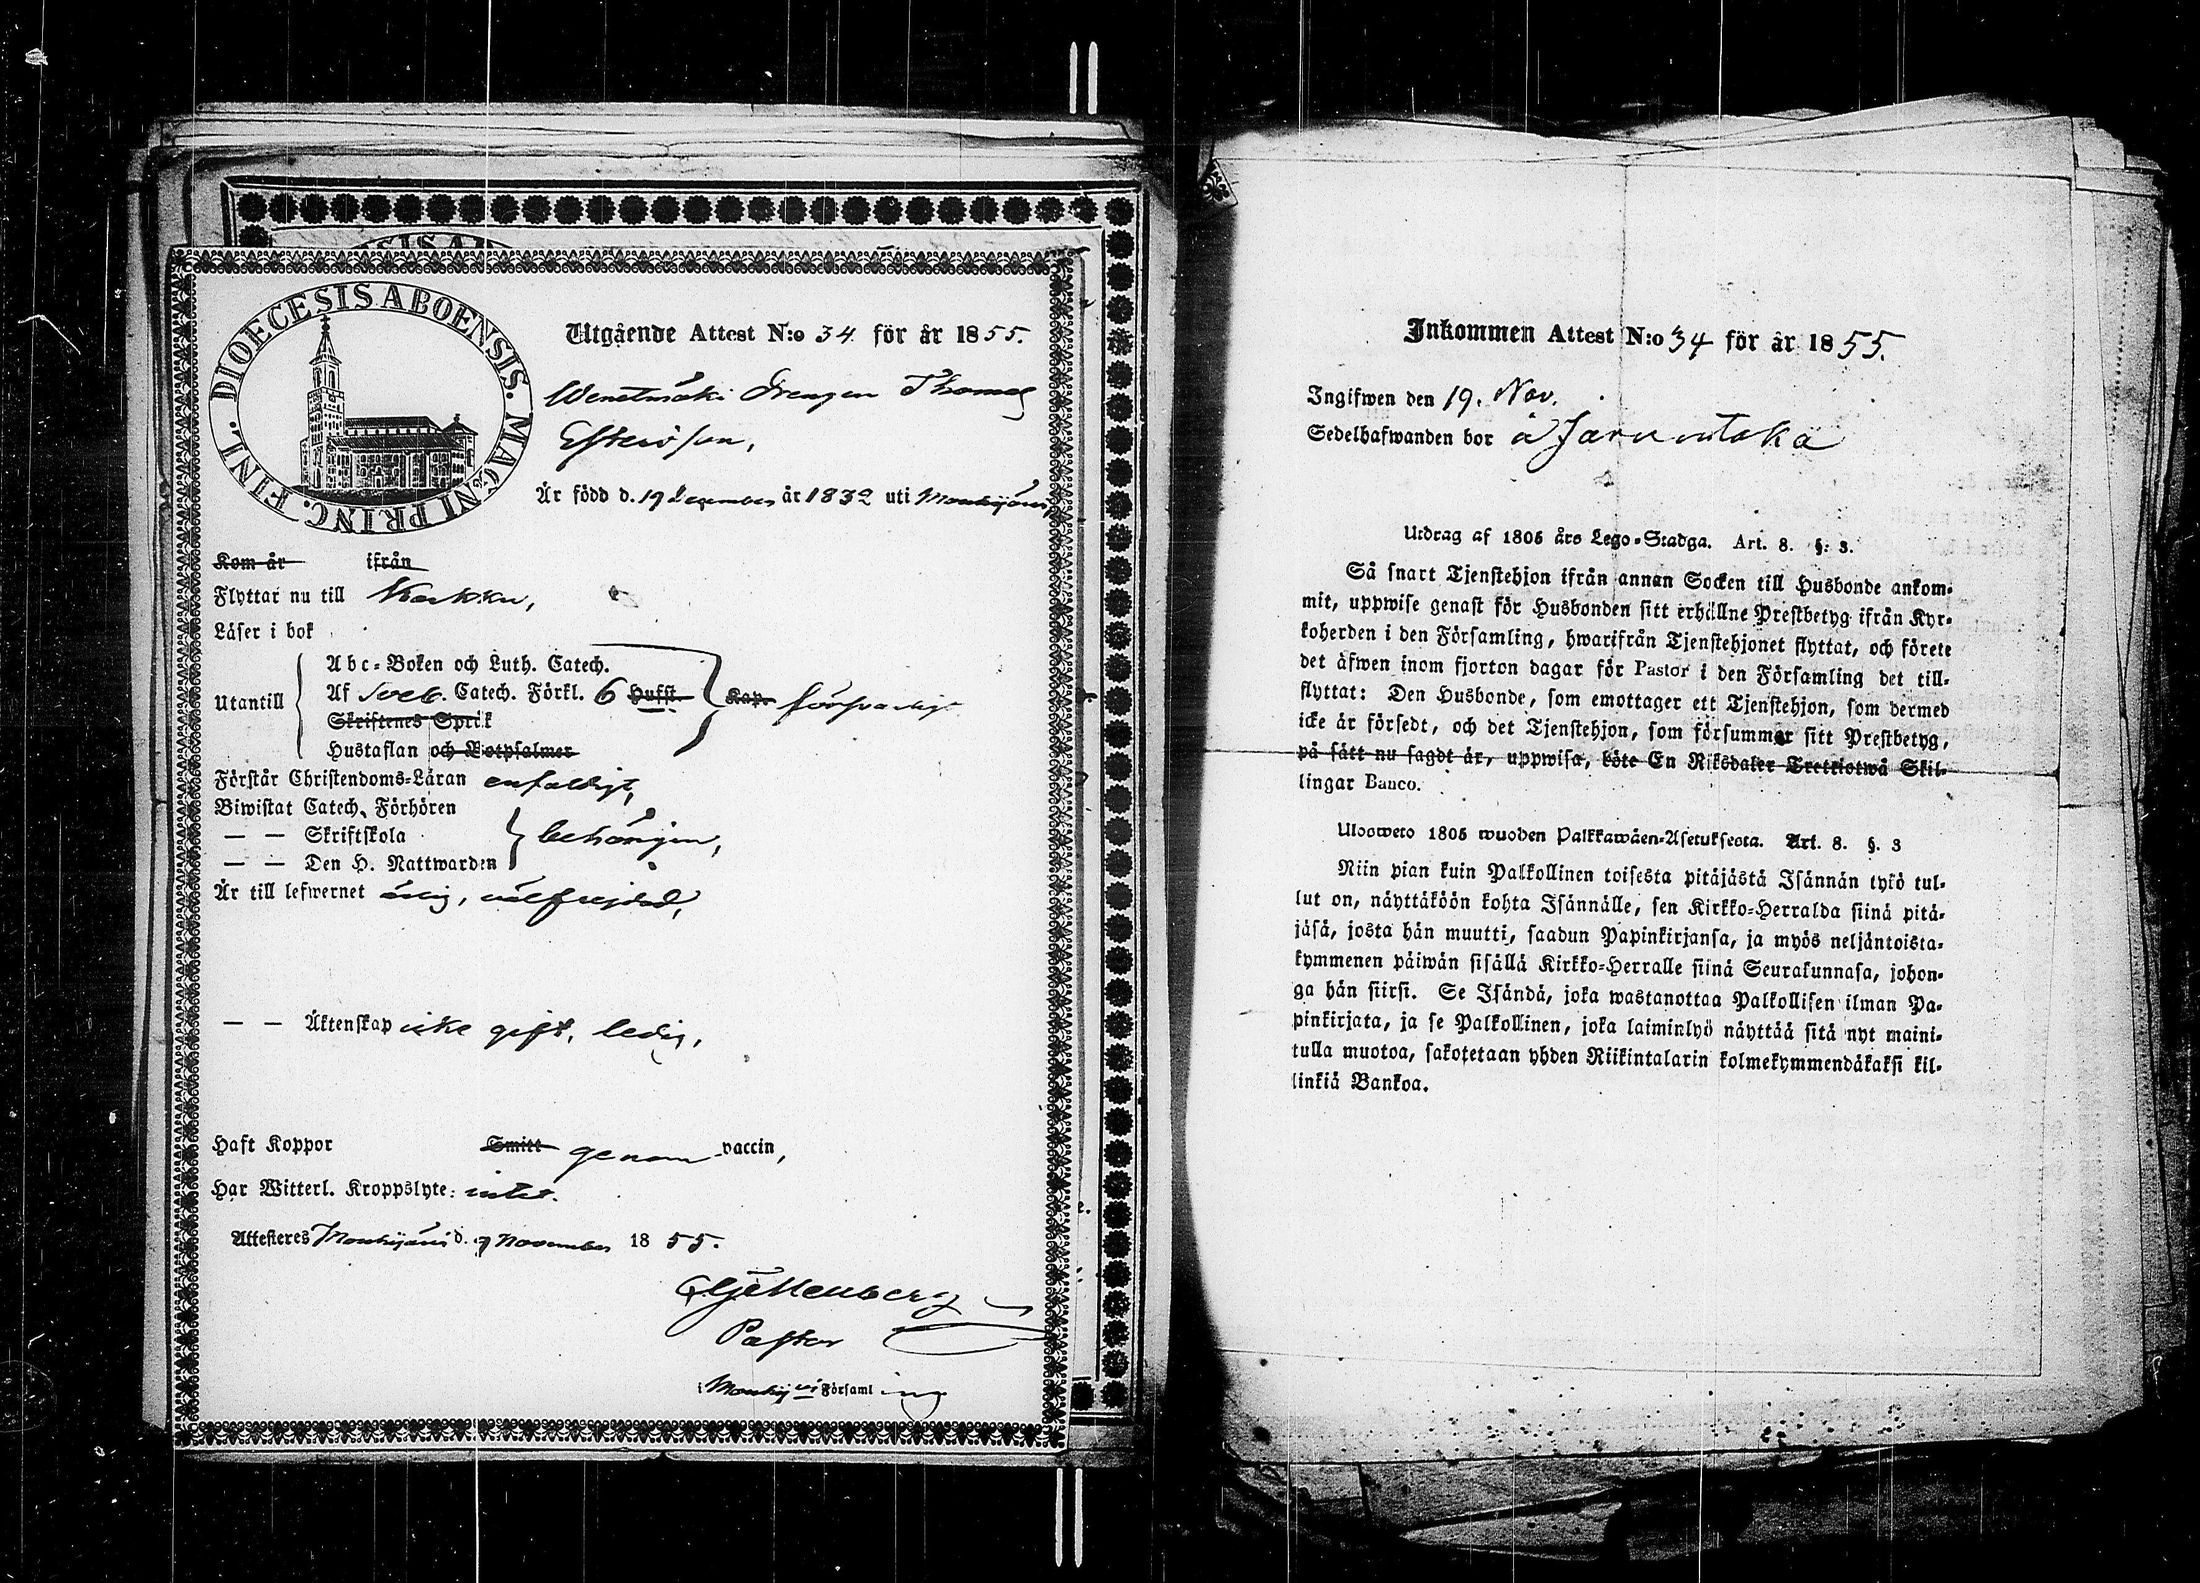 DIOECESIS ABOENSIS. MAGNI PRINC. FINL.
Utgående Attest N:o 34. för år 1855.
Drengen Thomas
Är född d. 19 december år 1832 uti Mouhijärvi,
Kom år ifrån
Flyttar nu till Karkku,
Läser i bok
Utantill
Abc-Boken och Luth. Catech.
Af Sveb. Catech. Förkl. 6 Hufst.
Skriftenes Språk
Hustaflan och Botpsalmer
Kap. försvarligt
Förstår Christendoms-Läran enfaldigt,
Biwistat Catech. Förhören
— — Skriftskola
— — Den H. Nattwarden
behörigen,
Är till lefwernet ärlig, välfrejdad,
— — Äktenskap icke gift, ledig,
Haft Koppor Smitt genom vaccin,
Har Witterl. Kroppslyte: intet.
Attesteres Mouhijärvi d. 9 November 1855.
Pastor
i Mouhijärvi Församling
Inkommen Attest N:o 34 för år 1855.
Ingifwen den 19. Nov.
Sedelhafwanden bor å Jarventaka
Utdrag af 1805 års Lego-Stadga. Art. 8. §: 3.
Så snart Tjenstehjon ifrån annan Socken till Husbonde ankom-
mit, uppwise genast för Husbonden sitt erhållne Prestbetyg ifrån Kyr-
koherden i den Församling, hwarifrån Tjenstehjonet flyttat, och förete
det äfwen inom fjorton dagar för Pastor i den Församling det till-
flyttat: Den Husbonde, som emottager ett Tjenstehjon, som dermed
icke är försedt, och det Tjenstehjon, som försummar sitt Prestbetyg,
på sätt nu sagdt är, uppwisa, böte En Riksdaler Trettiotwå Skil-
lingar Banco.
Ulosweto 1805 wuoden Palkkawäen-Asetuksesta. Art. 8. §. 3
Niin pian kuin Palkollinen toisesta pitäjästä Isännän tykö tul-
lut on, näyttäköön kohta Isännälle, sen Kirkko-Herralda siinä pitä-
jäsä, josta hän muutti, saadun Papinkirjansa, ja myös neljäntoista-
kymmenen päiwän sisällä Kirkko-Herralle siinä Seurakunnasa, johon-
ga hän siirsi. Se Isändä, joka wastanottaa Palkollisen ilman Pa-
pinkirjata, ja se Palkollinen, joka laiminlyö näyttää sitä nyt maini-
tulla muotoa, sakotetaan yhden Riikintalarin kolmekymmendäkaksi kil-
linkiä Bankoa.